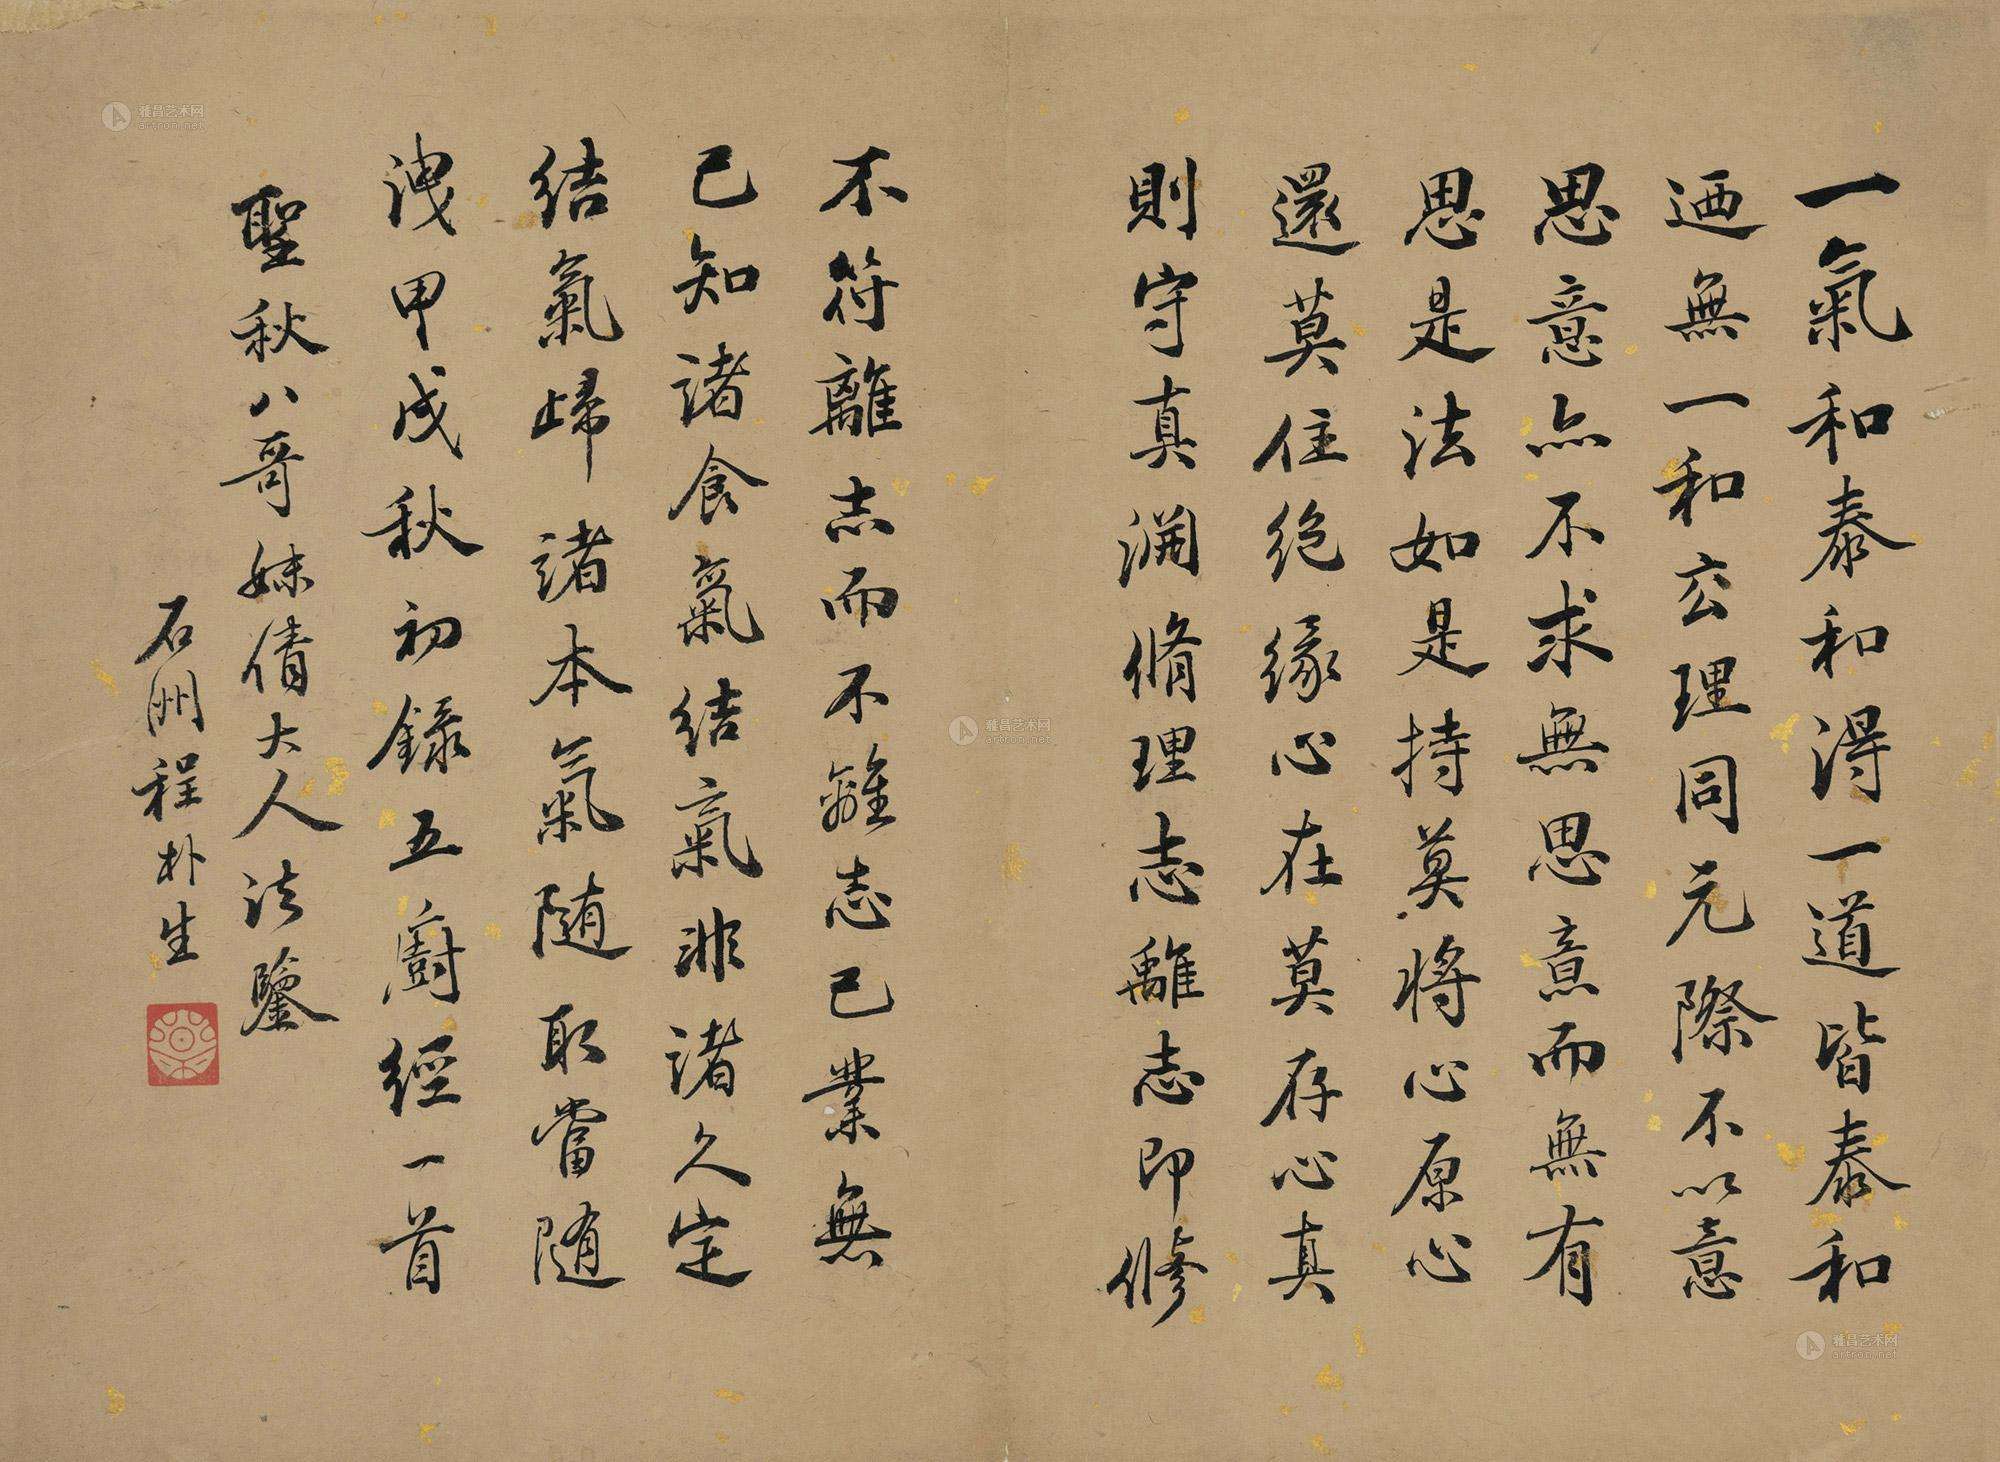 一氣和泰和得一道皆泰和
迺無一和玄理同元際不以意
思意亦不求無思意而無有
思是法如是持莫將心原心
還莫住絕緣心在莫存心真
則守真淵脩理志離志即修
不符離志而不離志已業無
已知諸食氣結氣非諸久定
結氣歸諸本氣隨取當隨
洩甲戌秋初錄五廚經一首
聖秋八哥妹倩大人法鑒
石洲程朴生
雅昌艺术网
artron.net
雅昌艺术网
artron.net
雅昌艺术网
artron.net